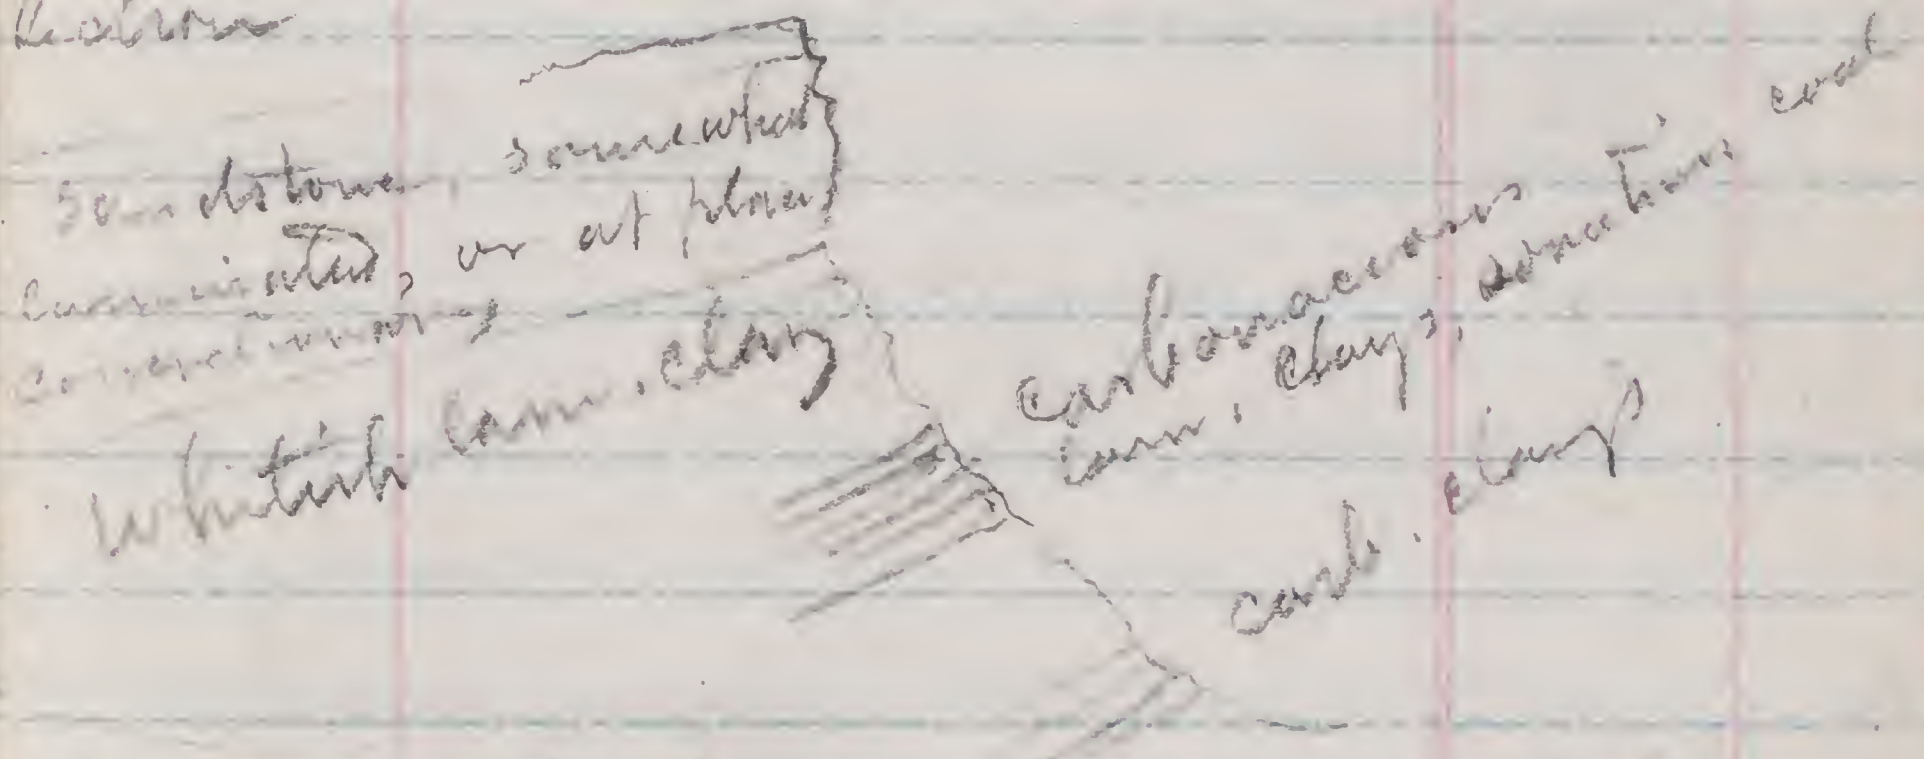 Section
Sandstone, somewhat
laminated, or at places
concretionary
Whitish lam. clay
carbonaceous
lam. clays, sometimes coal
carb. clays